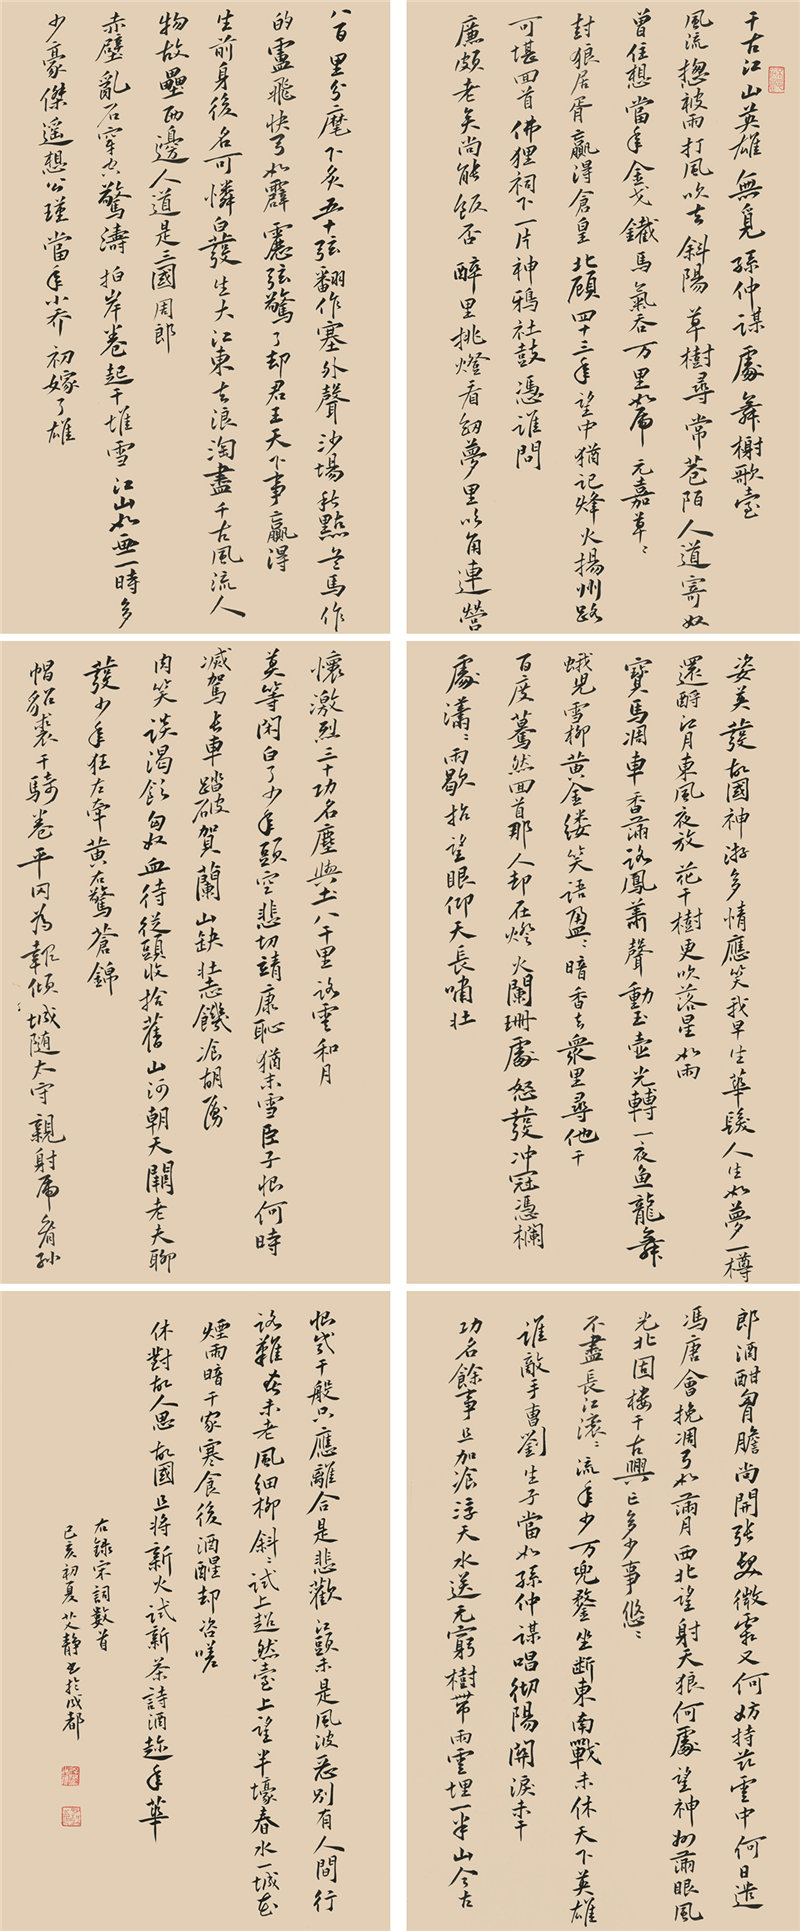 千古江山英雄無覓孫仲謀處舞榭歌臺
風流總被雨打風吹去斜陽草樹尋常巷陌人道寄奴
曾住想當年金戈鐵馬氣吞万里如虎元嘉草〻
封狼居胥贏得倉皇北顧四十三年望中猶記烽火揚州路
可堪回首佛狸祠下一片神鴉社鼓憑誰問
廉頗老矣尚能飯否醉里挑燈看劍夢里吹角連營
八百里分麾下炙五十弦翻作塞外聲沙場秋點兵馬作
的盧飛快弓如霹靂弦驚了却君王天下事贏得
生前身後名可憐白發生大江東去浪淘盡千古風流人
物故壘西邊人道是三國周郎
赤壁亂石穿空驚濤拍岸卷起千堆雪江山如畫一時多
少豪傑遥想公瑾當年小喬初嫁了雄
姿英發故國神游多情應笑我早生華髮人生如夢一樽
還酹江月東風夜放花千樹更吹落星如雨
寶馬凋車香滿路鳳簫聲動玉壺光轉一夜魚龍舞
蛾兒雪柳黄金缕笑語盈〻暗香去衆里尋他千
百度驀然回首那人却在燈火闌珊處怒發冲冠憑欄
處瀟〻雨歇抬望眼仰天長嘯壯
懷激烈三十功名塵與土八千里路雲和月
莫等閑白了少年頭空悲切靖康恥猶未雪臣子恨何時
滅駕長車踏破賀蘭山缺壯志饑飡胡虜
肉笑談渴飲匈奴血待從頭收拾舊山河朝天闕老夫聊
發少年狂左牽黄右擎蒼錦
帽貂裘千騎卷平冈為報傾城随太守親射虎看孫
郎酒酣胸膽尚開張鬢微霜又何妨持節雲中何日遣
馮唐會挽凋弓如滿月西北望射天狼何處望神州滿眼風
光北固楼千古興亡多少事悠〻
不盡長江滚〻流年少万兜鍪坐断東南戰未休天下英雄
誰敵手曹劉生子當如孫仲謀唱徹陽關淚未干
功名餘事且加飡浮天水送无窮樹帶雨雲埋一半山今古
恨幾千般只應離合是悲歡江頭未是風波惡别有人間行
路難春未老風細柳斜〻試上超然臺上望半壕春水一城花
煙雨暗千家寒食後酒醒却咨嗟
休對故人思故國且將新火試新茶詩酒趁年華
右錄宋詞數首
己亥初夏艾静書於成都